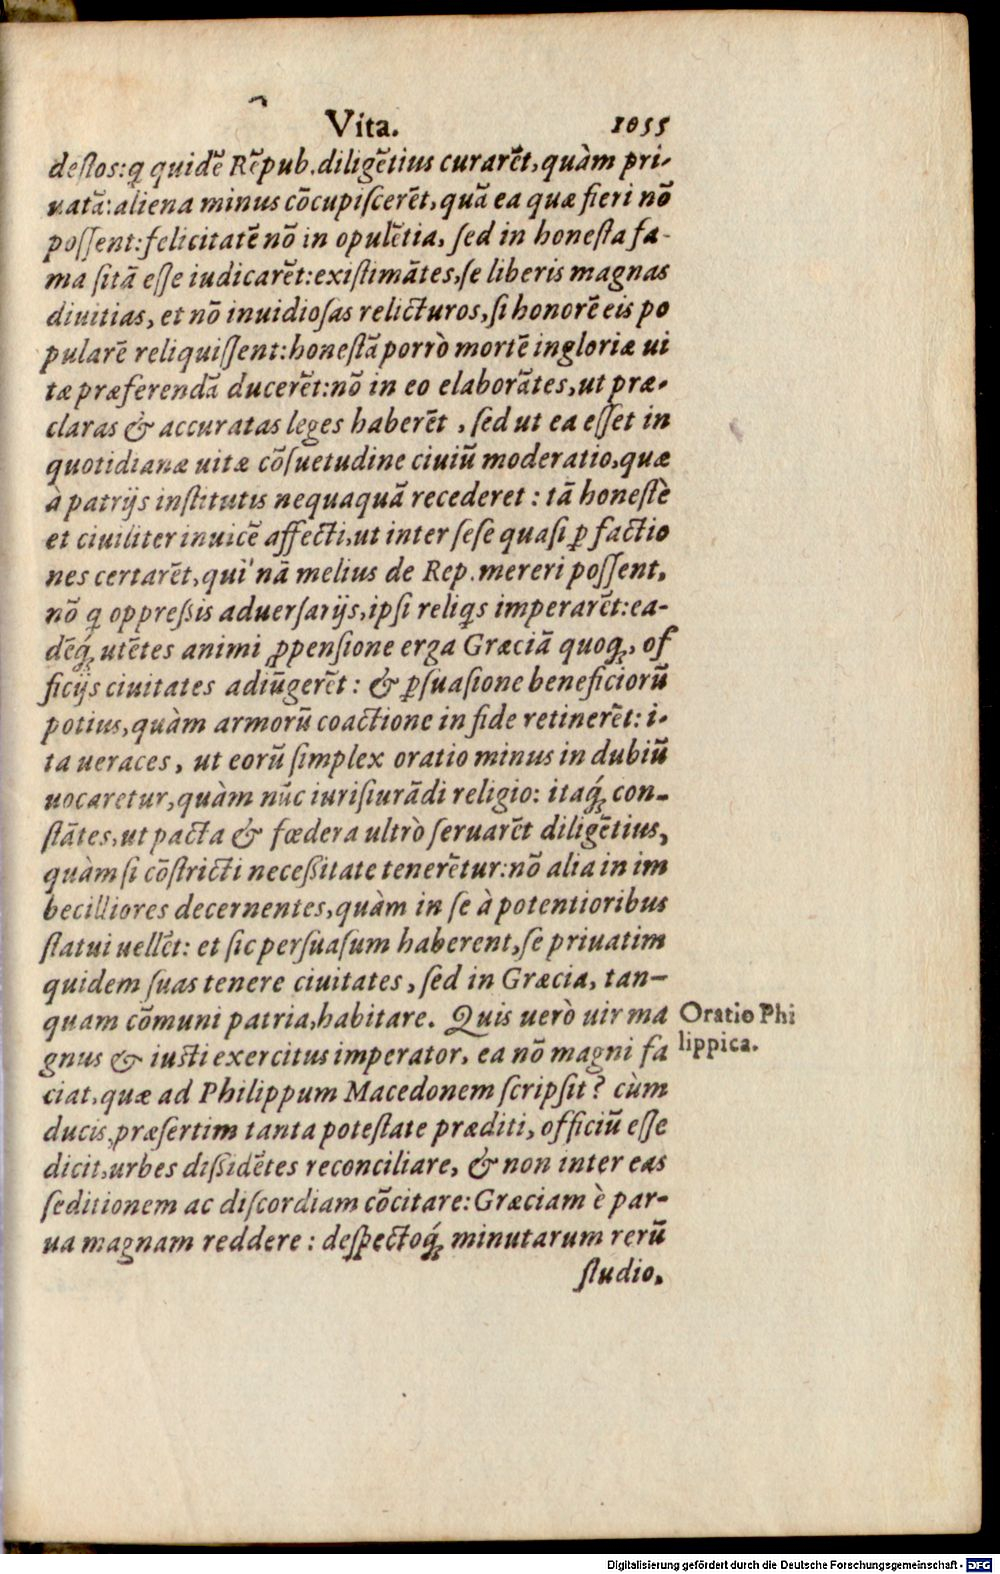 Vita. 1055
deſtos: ꝗ quidẽ Rẽpub. diligẽtius curarẽt, quàm pri-
uatã: aliena minus cõcupiſcerẽt, quã ea quæ fieri nõ
poſſent: felicitatẽ nõ in opulẽtia, ſed in honeſta fa-
ma ſitã eſſe iudicarẽt: exiſtimãtes, ſe liberis magnas
diuitias, et nõ inuidioſas relicturos, ſi honorẽ eis po
pularẽ reliquiſſent: honeſtã porrò mortẽ ingloriæ ui
tæ præferendã ducerẽt: nõ in eo elaborãtes, ut præ-
claras & accuratas leges haberẽt, ſed ut ea eſſet in
quotidianæ uitæ cõſuetudine ciuiũ moderatio, quæ
à patrijs inſtitutis nequaquã recederet: tã honeſtè
et ciuiliter inuicẽ affecti, ut inter ſeſe quaſi ꝑ factio
nes certarẽt, qui nã melius de Rep. mereri poſſent,
nõ ꝗ oppreßis aduerſarijs, ipſi reliꝗs imperarẽt: ea-
dẽq́; utẽtes animi ꝓpenſione erga Græciã quoq;, of
ficijs ciuitates adiũgerẽt: & ꝑſuaſione beneficiorũ
potius, quàm armorũ coactione in fide retinerẽt: i-
ta ueraces, ut eorũ ſimplex oratio minus in dubiũ
uocaretur, quàm nũc iuriſiurãdi religio: itaq́; con-
ſtãtes, ut pacta & fœdera ultrò ſeruarẽt diligẽtius,
quàm ſi cõſtricti neceßitate tenerẽtur: nõ alia in im
becilliores decernentes, quàm in ſe à potentioribus
ſtatui uellẽt: et ſic perſuaſum haberent, ſe priuatim
quidem ſuas tenere ciuitates, ſed in Græcia, tan-
quam cõmuni patria, habitare. Quis uerò uir ma
gnus & iuſti exercitus imperator, ea nõ magni fa
ciat, quæ ad Philippum Macedonem ſcripſit? cùm
ducis, præſertim tanta poteſtate præditi, officiũ eſſe
dicit, urbes dißidẽtes reconciliare, & non inter eas
ſeditionem ac diſcordiam cõcitare: Græciam è par-
ua magnam reddere: deſpectoq́; minutarum rerũ
ſtudio,
Oratio Phi
lippica.
Digitalisierung gefördert durch die Deutsche Forschungsgemeinschaft - DFG